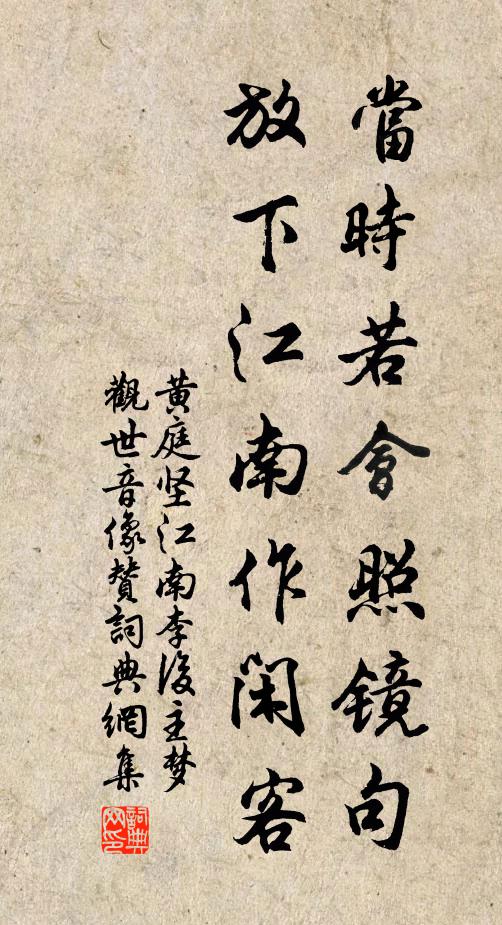 當時若會照鏡句
放下江南作閑客
黄庭坚江南李後主梦
觀世音像賛詞典網集
詞典网印